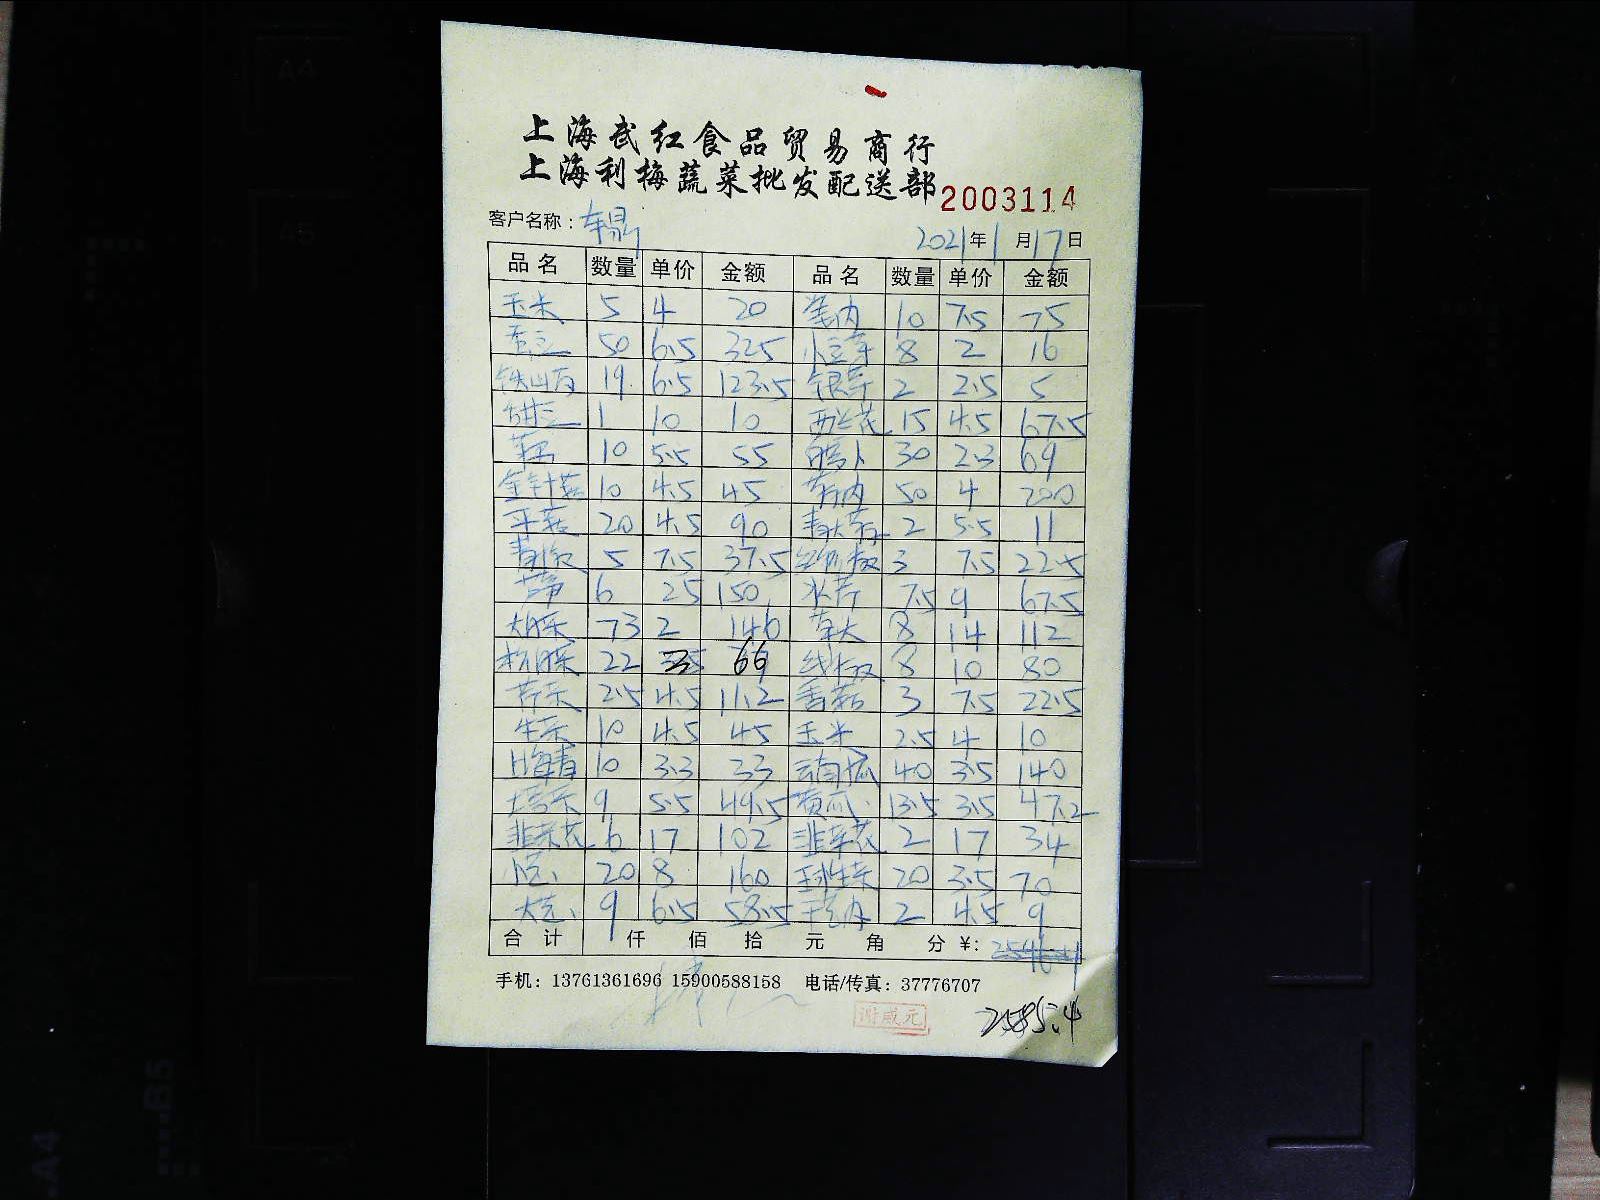 上海武红食品贸易商行
上海利梅蔬菜批发配送部 2003114
客户名称： 2021年1月17日
品名 数量 单价 金额 品名 数量 单价 金额
玉米 5 4 20 10 7.5 75
50 6.5 325 小豆芽 8 2 16
铁山药 19 6.5 123.5 银芽 2 2.5 5
甜豆 1 10 10 西兰花 15 4.5 67.5
10 5.5 55 白萝卜 30 2.3 69
金针菇 10 4.5 45 50 4 200
平菇 20 4.5 90 2 5.5 11
青椒 5 7.5 37.5 3 7.5 22.5
6 25 150 水芹 7.5 9 67.5
73 2 146 8 14 112
22 66 线椒 8 10 80
芹菜 2.5 4.5 11.2 香菇 3 7.5 22.5
生菜 10 4.5 45 玉米 2.5 4 10
上海青 10 3.3 33 40 3.5 140
塔菜 9 5.5 49.5 黄瓜 13.5 3.5 47.2
韭菜花 6 17 102 韭菜花 2 17 34
20 8 160 球生菜 20 3.5 70
9 6.5 58.5 2 4.5 9
合计 仟 佰 拾 元 角 分 ¥:
手机：13761361696 15900588158 电话/传真：37776707
谢咸元
2585.4